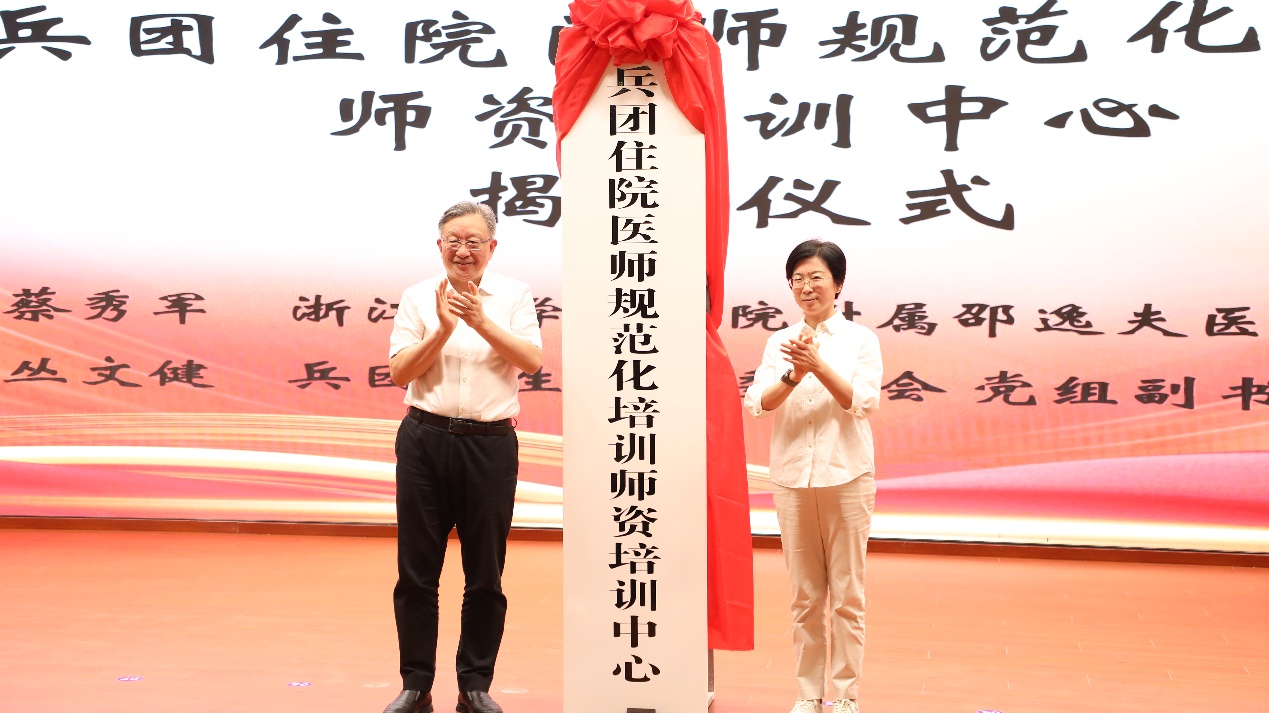 兵团住院 师规范化
师资 训中心
揭 仪式
蔡秀军 浙江 学 院附属邵逸夫医
丛文健 兵团 生 委 会 党组副书
兵团住院医师规范化培训师资培训中心